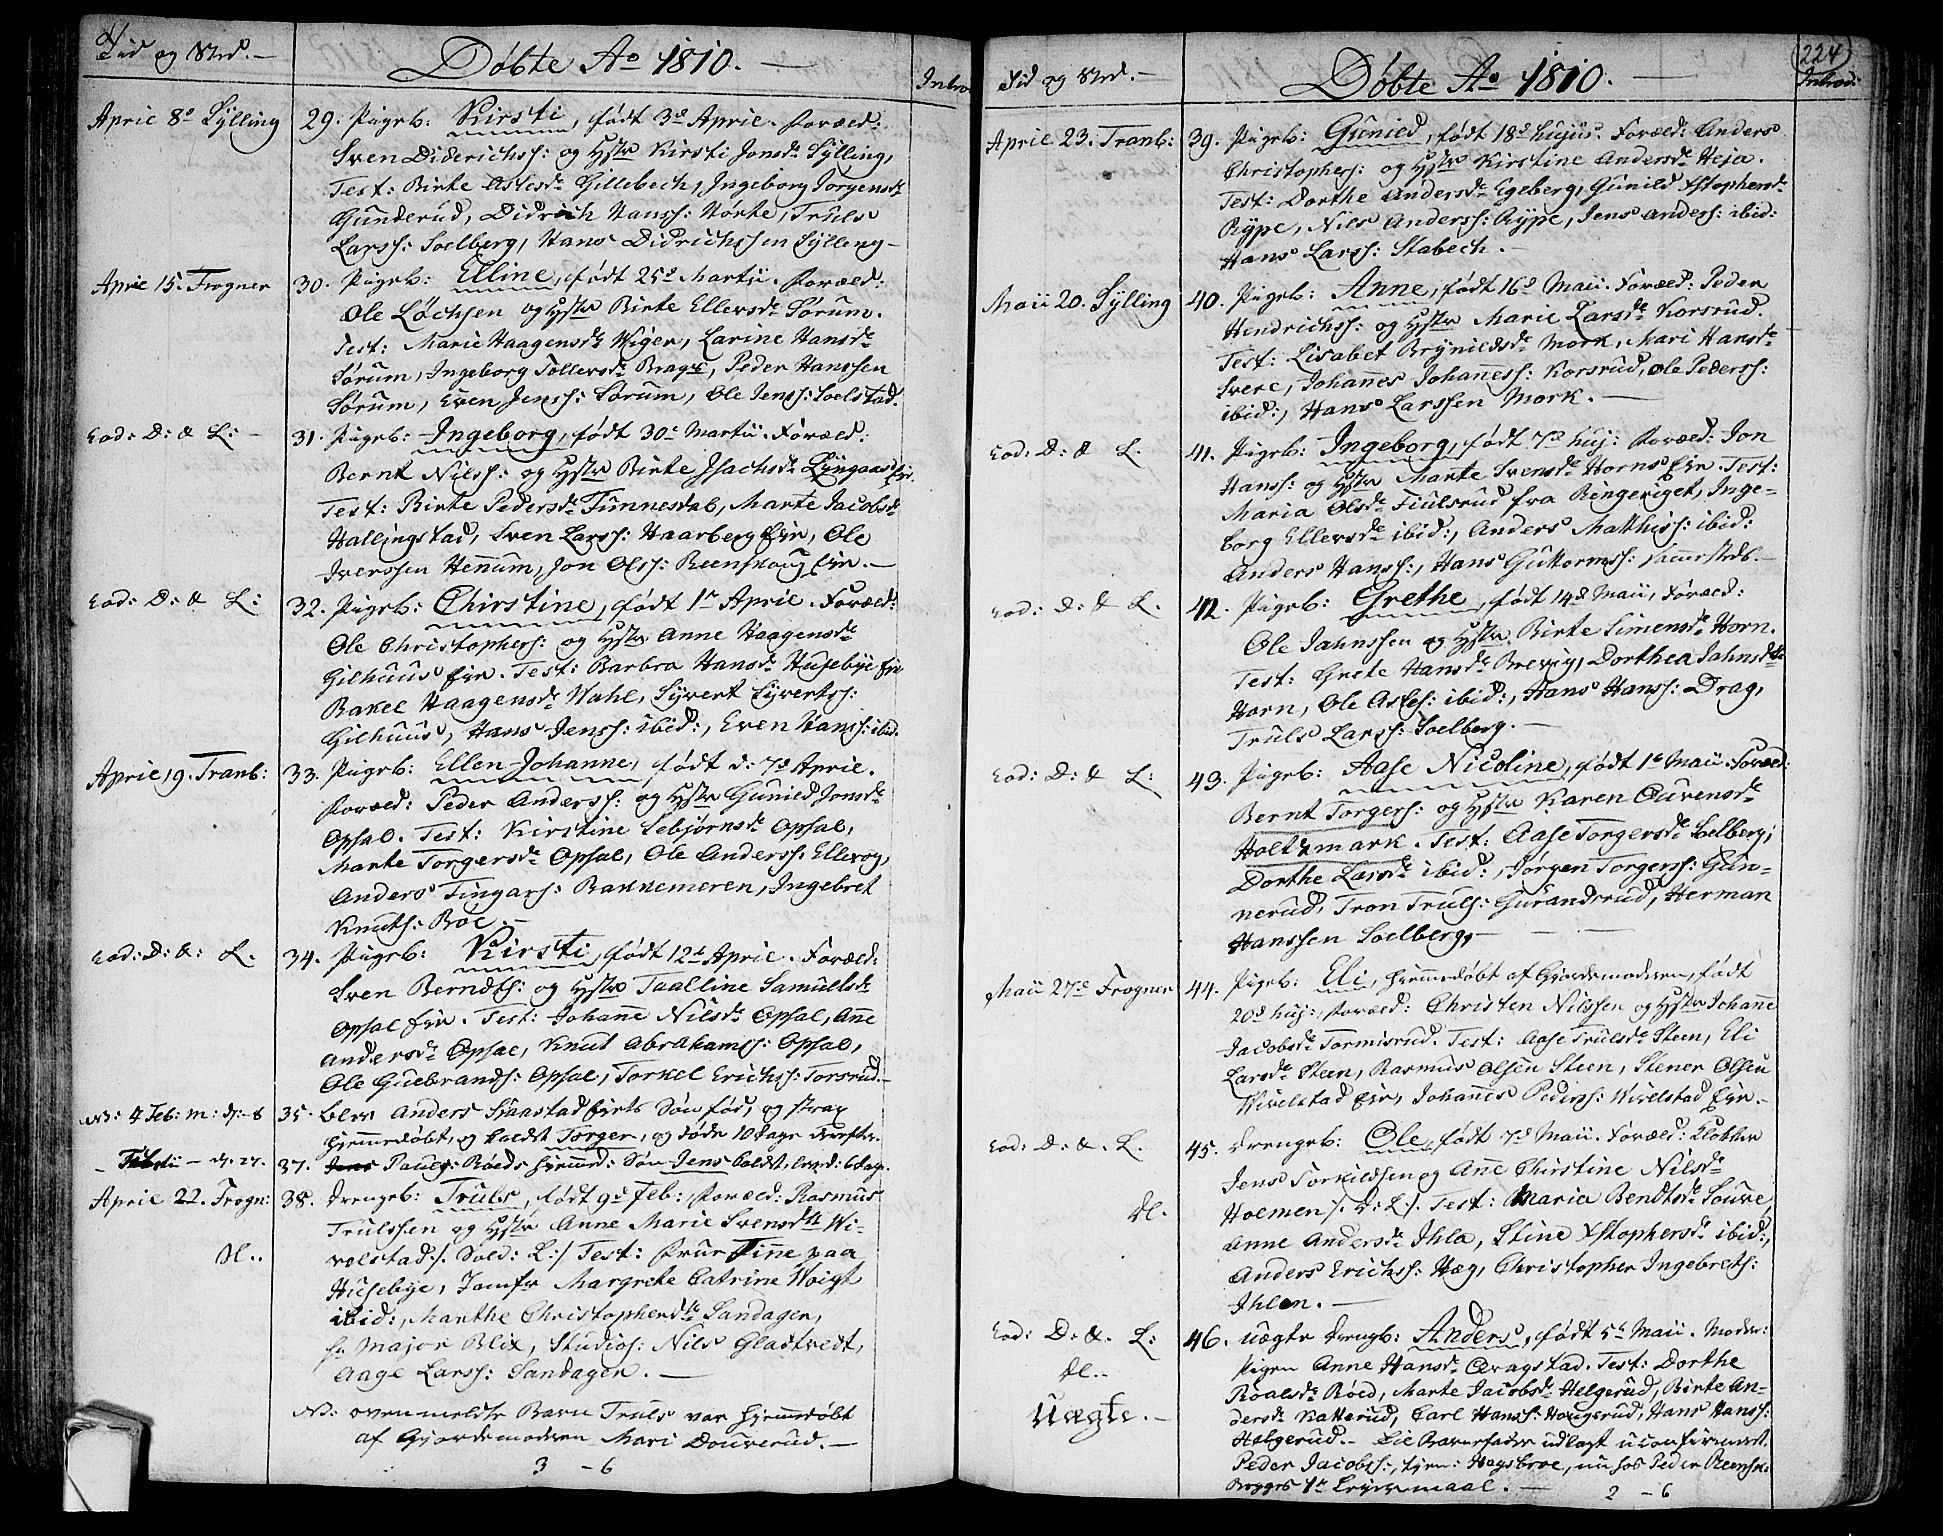 Tid og Sted.
Døbte Ao 1810.
April 8de Sylling
29. Pigeb: Kirsti, født 3d April. Foræld:
Sven Diderichss: og Hstr Kirsti Jonsdr Sylling,
Test: Birte Aslesdr Gillebech, Ingeborg Jørgensdr
Gunderud, Didrich Hanss: Hørte, Truls
Larss: Soelberg, Hans Didrichssen Sylling
April 15. Frogner
30. Pigeb: Elline, født 25d Martii. Foræld:
Ole Løchsen og Hstr Birte Ellersdr Sørum.
Test: Marie Haagensdr Wiger, Larine Hansdr
Sørum, Ingeborg Tollersdr Brage, Peder Hanssen
Sørum, Even Jenss: Sørum, Ole Jenss: Soelstad.
Eod: D: & L:
31. Pigeb: Ingeborg, født 30t Martii. Foræld:
Bernt Nilss: og Hstr Birte Isachsdr Lyngaas Eir.
Test: Birte Pedersdr Tunnesdal, Marte Jacobsdr
Hallingstad, Sven Larss: Haarberg Eir, Ole
Iverssen Henum, Jon Olss: Reenskoug Eir.
Eod: D: & L:
32. Pigeb: Chirstine, født 1r April. Foræld:
Ole Christophers: og Hstr Anne Haagensdr
Gilhuus Eir. Test: Barbra Hansdr Husebye Eir
Rakel Haagensdr Wahl, Syvert Syvertss:
Gilhuus, Hans Jenss: ibid:, Even Hanss: ibid.
April 19. Tranb:
33. Pigeb: Ellen Johanne, født d: 7d April.
Foræld: Peder Anderss: og Hstr Gunild Jonsdr
Opsal. Test: Kirstine Sebjørnsdr Opsal,
Marte Torgersdr Opsal, Ole Anderss: Ellevog,
Anders Fingars: Bakkemeren, Ingebret
Knuths: Boe.
Eod: D: &: L.
34. Pigeb: Kirsti, født 12d April. Foræld:
Sven Berndts: og Hstr Taalline Samuelsdr
Opsal Eir. Test: Johanne Nilsdr Opsal, Anne
Andersdr Opsal, Knut Abrahamss: Opsal,
Ole Guebrands: Opsal, Torkel Erichss: Torsrud.
N: 4 Feb: m: d: 8
35. blev Anders Skaastad Eirts Søn fød, og strax
hjemmedøbt, og kaldt Torger, og døde 10 Dage derefter.
d. 27.
37. Pauels: Røeds hjemd: Søn Jens kaldt, leved: 6 dag.
April 22. Frogn:
38. Drengeb: Truls, født 9d Feb: Foræld: Rasmus
Trulssen og Hstr Anne Marie Svensdtr Wi-
velstad /: Sold: L:/ Test: Frue Finne paa
Dl..
Husebye, Jomfr Margrete Catrine Woigt
ibid:, Marthe Christophersdtr Sandager,
hr Major Blix, Studios: Nils Gladtvedt,
Aage Larss: Sandager.
NB: ovenmeldte Barn Truls var hjemmedøbt
af Gjordemoderen Mari Douverud.
3 - 6
Tid og Sted.
Døbte Ao 1810.
224
Introd:
April 23. Tranb:
39. Pigeb: Gunild, født 18d hujus. Foræld: Anders
Christophers: og Hstr Kirstine Andersdr Heja.
Test: Dorthe Andersdr Egeberg, Gunild Xstophersdr
Rype, Nils Anderss: Rype, Jens Anderss: ibid:
Hans Larss: Stabech.
Maii 20. Sylling
40. Pigeb: Anne, født 16d Maii. Foræld: Peder
Hendrichss: og Hstr Marie Larsdr Korsrud.
Test: Lisabet Brynildsdr Mork, Mari Hansdr
Svere, Johannes Johaness: Korsrud, Ole Pederss:
ibid:, Hans Larssen Mork.
Eod: D: & L.
41. Pigeb: Ingeborg, født 7d huj: Foræld: Jon
Hanss: og Hstr Marte Svensdr Horns Eir. Test:
Maria Olsdr Fiulsrud fra Ringeriget, Inge-
borg Ellersdr ibid:, Anders Matthiss: ibid:
Anders Hanss:, Hans Guttormss:
Eod: D: & L.
42. Pigeb: Grethe, født 14d Maii, Foræld:
Ole Jahnssen og Hstr Birte Simensdr Horn.
Test: Grete Hansdr Brevig, Dorthea Jahnsdtr
Horn, Ole Asles: ibid:, Hans Hanss: Drag,
Truls Larss: Soelberg.
Eod: D: & L:
43. Pigeb: Aase Nicoline, født 1t Maii. Foræld:
Bernt Torgers: og Hstr Karen Guvensdr
Holtzmark. Test: Aase Torgersdr Solberg,
Dorthe Larsdr ibid:, Jørgen Torgers: Gun-
nerud, Tron Truls: Gurandsrud, Herman
Hanssen Soelberg.
Maii 27de Frogner
44. Pigeb: Eli, hjemmedøbt af Gjordemoderen, født
20d huj: Foræld: Christen Nilssen og Hstr Johanne
Jacobsdr Tormisrud. Test: Aase Trulsdr Steen, Eli
Larsdr Steen, Rasmus Olsen Steen, Stener Olsen
Wivelstad Eir, Johannes Peders: Wivelstad Eir.
Eod: D: &. L.
45. Drengeb: Ole, født 7d Maii. Foræld: Klokker
Jens Torkildsen og Anne Chirstine Nilsdr
Dl.
Holmen /: D: L:/. Test: Maria Bendtsdr Soure,
Anne Andersdr Ihla, Stine Xstophersdr ibid:,
Anders Erichss: Hæg, Christopher Ingebrets:
Ihlen.
Eod: D: &. L:
Dl..
Uægte.
46. uægte Drengb: Anders, født 5t Maii. Moder:
Pigen Anne Hansdr Qvagstad. Test: Dorthe
Roalsdr Røed, Marte Jacobsdr Helgerud, Birte An-
dersdr Katterud, Carl Hanss: Haugerud, Hans Hanss:
Helgerud. Til Barnefader udlagt uconfirmert
Peder Jacobss:, tjen: Haysbroe, nu hos Peder Reensk:
Begges 1te Leyermaal.
2 - 6